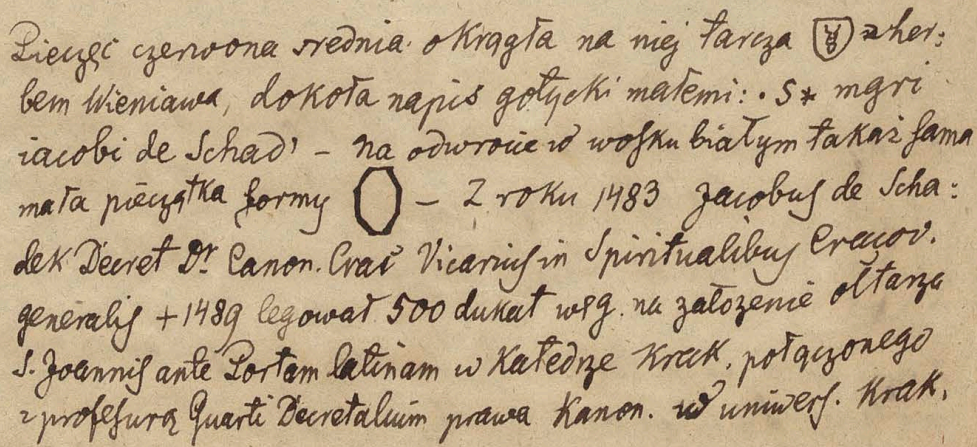 Pieczęć czerwona średnia okrągła na niej tarcza z her:
bem Wieniawa, dokoła napis gotycki małemi: . S * mgri
iacobi de Schad' – na odwrocie w wosku białym takaż sama
mała pieczątka formy – Z roku 1483 Jacobus de Scha:
dek Decret Dr. Canon. Crac Vicarius in Spiritualibus Cracov.
generalis + 1489 legował 500 dukat węg. na założenie ołtarza
S. Joannis ante Portam latinam w Katedrze Krak. połączonego
z profesurą Quarti Decretalium prawa Kanon. w uniwers. Krak.